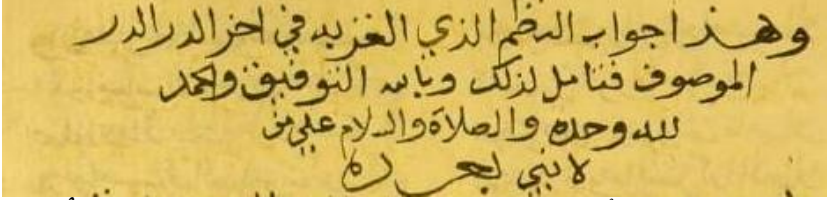 وهذا جواب النظم الذي الغز به في اخر الدر الدر
الموصوف فتامل لذلك وبالله التوفيق والحمد
لله وحده والصلاة والسلام على من
لا نبي بعده